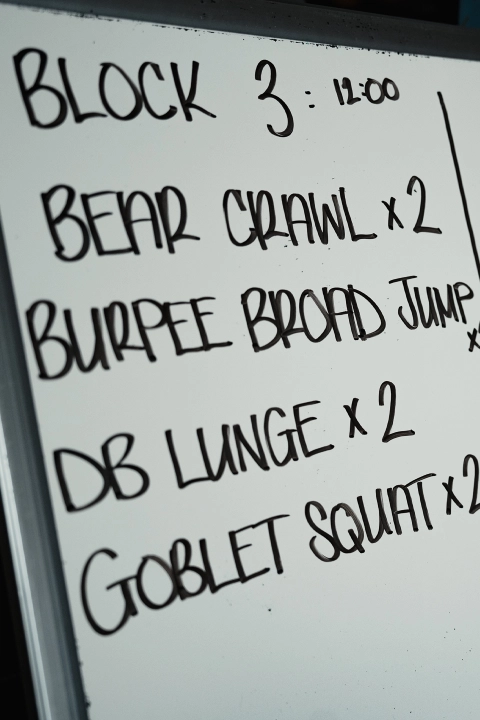 BLOCK 3: 12:00
BEAR CRAWL x2
BURPEE BROAD JUMP
x
DB LUNGE x 2
GOBLET SQUAT x2